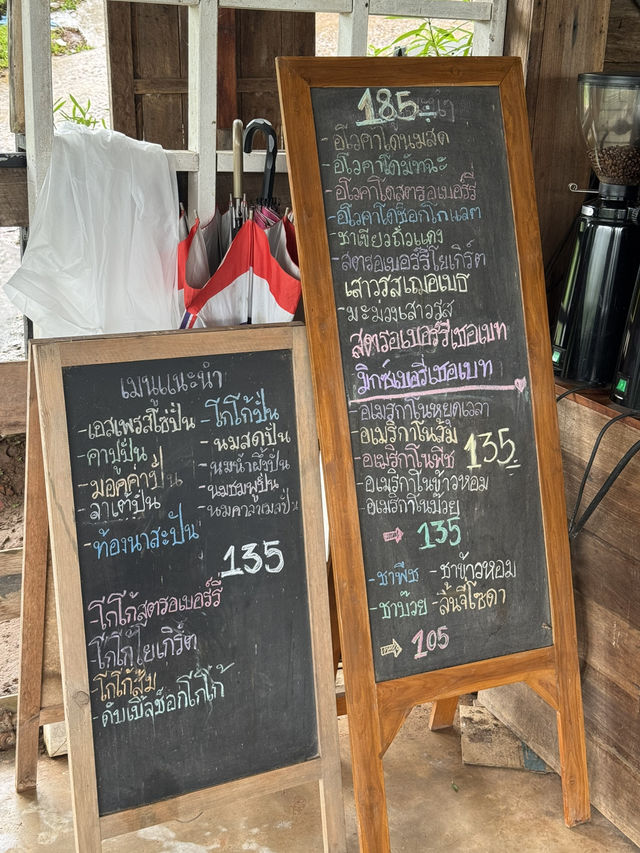 เมนูแนะนำ
-เอสเพรสโซ่ปั่น -โกโก้ปั่น
-คาปูปั่น -นมสดปั่น
-มอคค่าปั่น -นมน้ำผึ้งปั่น
-ลาเต้ปั่น -นมชมพูปั่น
-นมคาราเมลปั่น
-ท้องนาสะปั่น
135
-โกโก้สตรอเบอร์รี่
-โกโก้โยเกิร์ต
-โกโก้ส้ม
-ดับเบิ้ลช็อกโกโก้
185.-
-อโวคาโดนมสด
-อโวคาโดมัทฉะ
-อโวคาโดสตรอเบอร์รี่
-อโวคาโดช็อกโกแลต
-ชาเขียวถั่วแดง
-สตรอเบอร์รี่โยเกิร์ต
เสาวรสเชอเบท
-มะม่วงเสาวรส
สตรอเบอร์รี่เชอเบท
มิกซ์เบอรี่เชอเบท
-อเมริกาโนหยุดเวลา
-อเมริกาโนส้ม 135.-
-อเมริกาโนพีช
-อเมริกาโนข้าวหอม
-อเมริกาโนบ๊วย
135
-ชาพีช -ชาข้าวหอม
-ชาบ๊วย -ลิ้นจี่โซดา
105